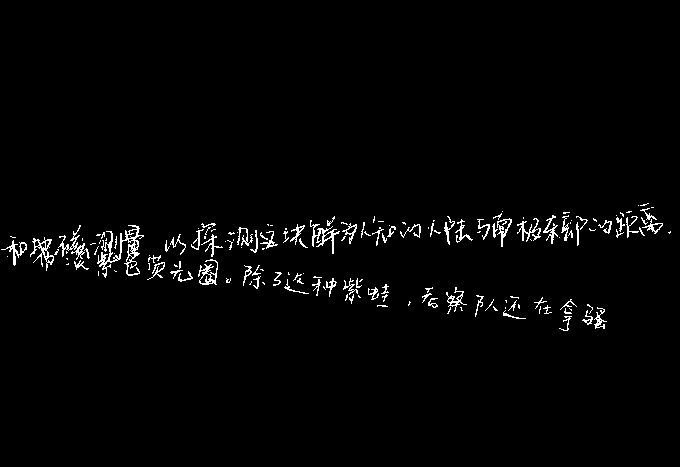 和地磁测量,以探测这块鲜为人知的大陆与南极东部的距离.
紫色荧光圈。除了这种紫蛙,考察队还在拿骚